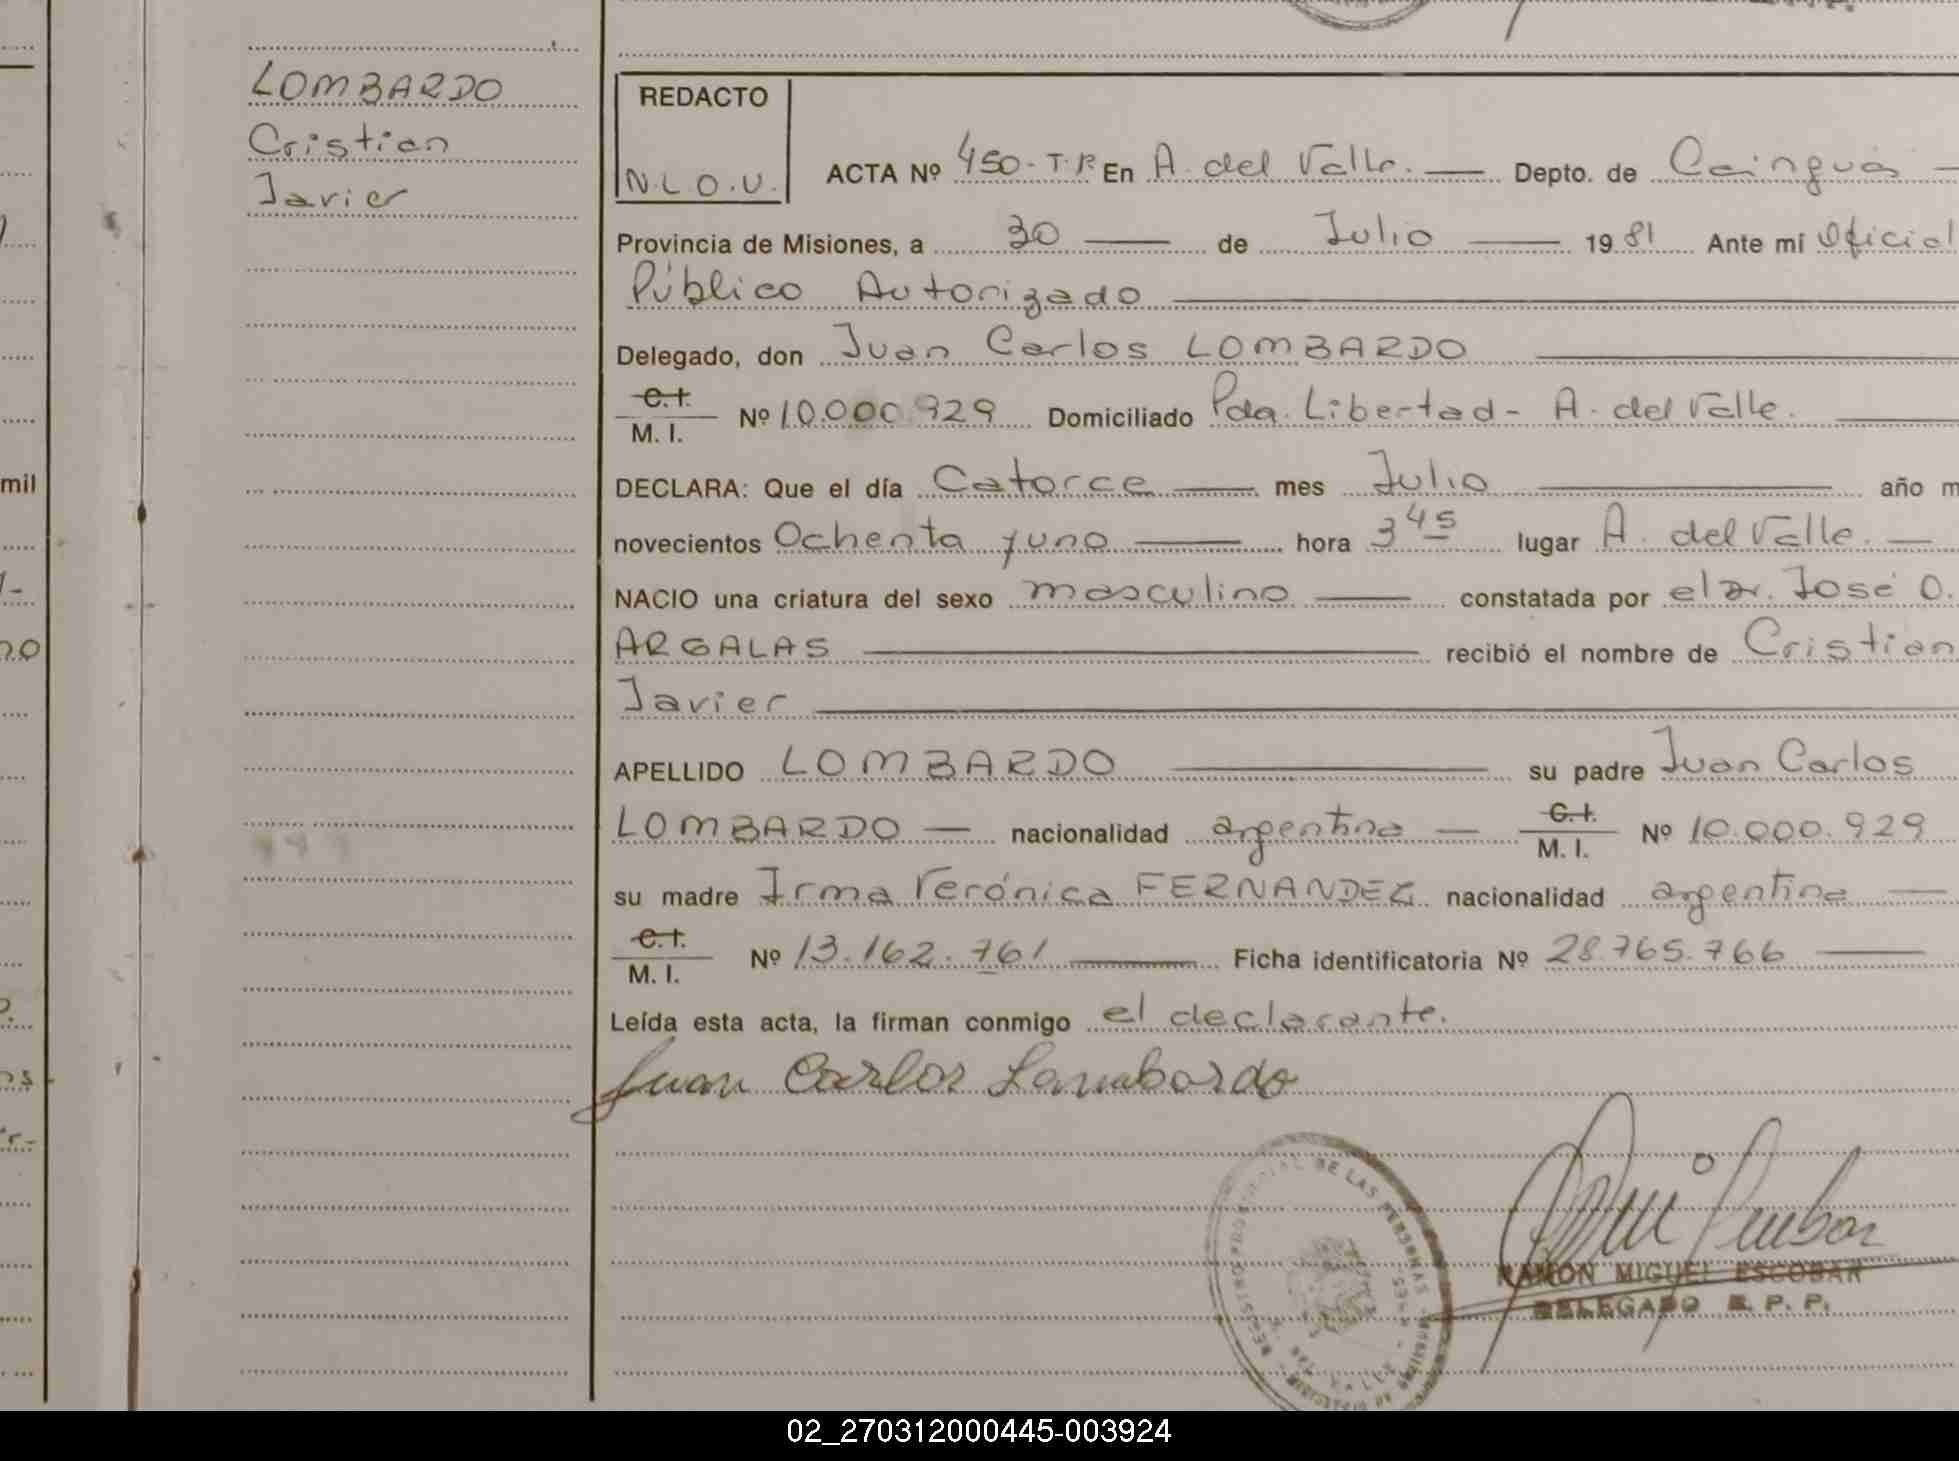 LOMBARDO
Cristian
Javier
REDACTO
N.L.O.U.
ACTA Nº 450-T.P. En A. del Valle. Depto. de Cainguás
Provincia de Misiones, a 30 de Julio 1981 Ante mí Oficial
Público Autorizado
Delegado, don Juan Carlos LOMBARDO
C.I. M.I. Nº 10.000.929 Domiciliado Pda. Libertad - A. del Valle.
DECLARA: Que el día Catorce mes Julio año m
novecientos Ochenta y uno hora 3 45 lugar A. del Valle.
NACIO una criatura del sexo masculino constatada por el Dr. José O.
ARGALAS recibió el nombre de Cristian
Javier
APELLIDO LOMBARDO su padre Juan Carlos
LOMBARDO nacionalidad argentina C.I. M.I. Nº 10.000.929
su madre Irma Verónica FERNANDEZ nacionalidad argentina
C.I. M.I. Nº 13.162.761 Ficha identificatoria Nº 28.765.766
Leída esta acta, la firman conmigo el declarante.
Juan Carlos Lombardo
DE LAS PERSONAS
RAMON MIGUEL ESCOBAR
DELEGADO R. P. P.
mil
02_270312000445-003924